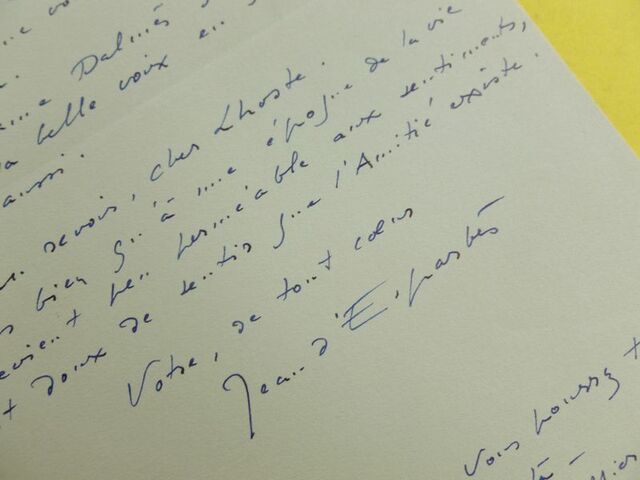 Dalmès
la belle voix en
aussi.
revoir, cher Lhoste.
bien qu'à une époque de la vie
devient peu perméable aux sentiments,
doux de sentir que l'Amitié existe.
Votre, de tout cœur
Jean d'Esparbès
Vous pourrez